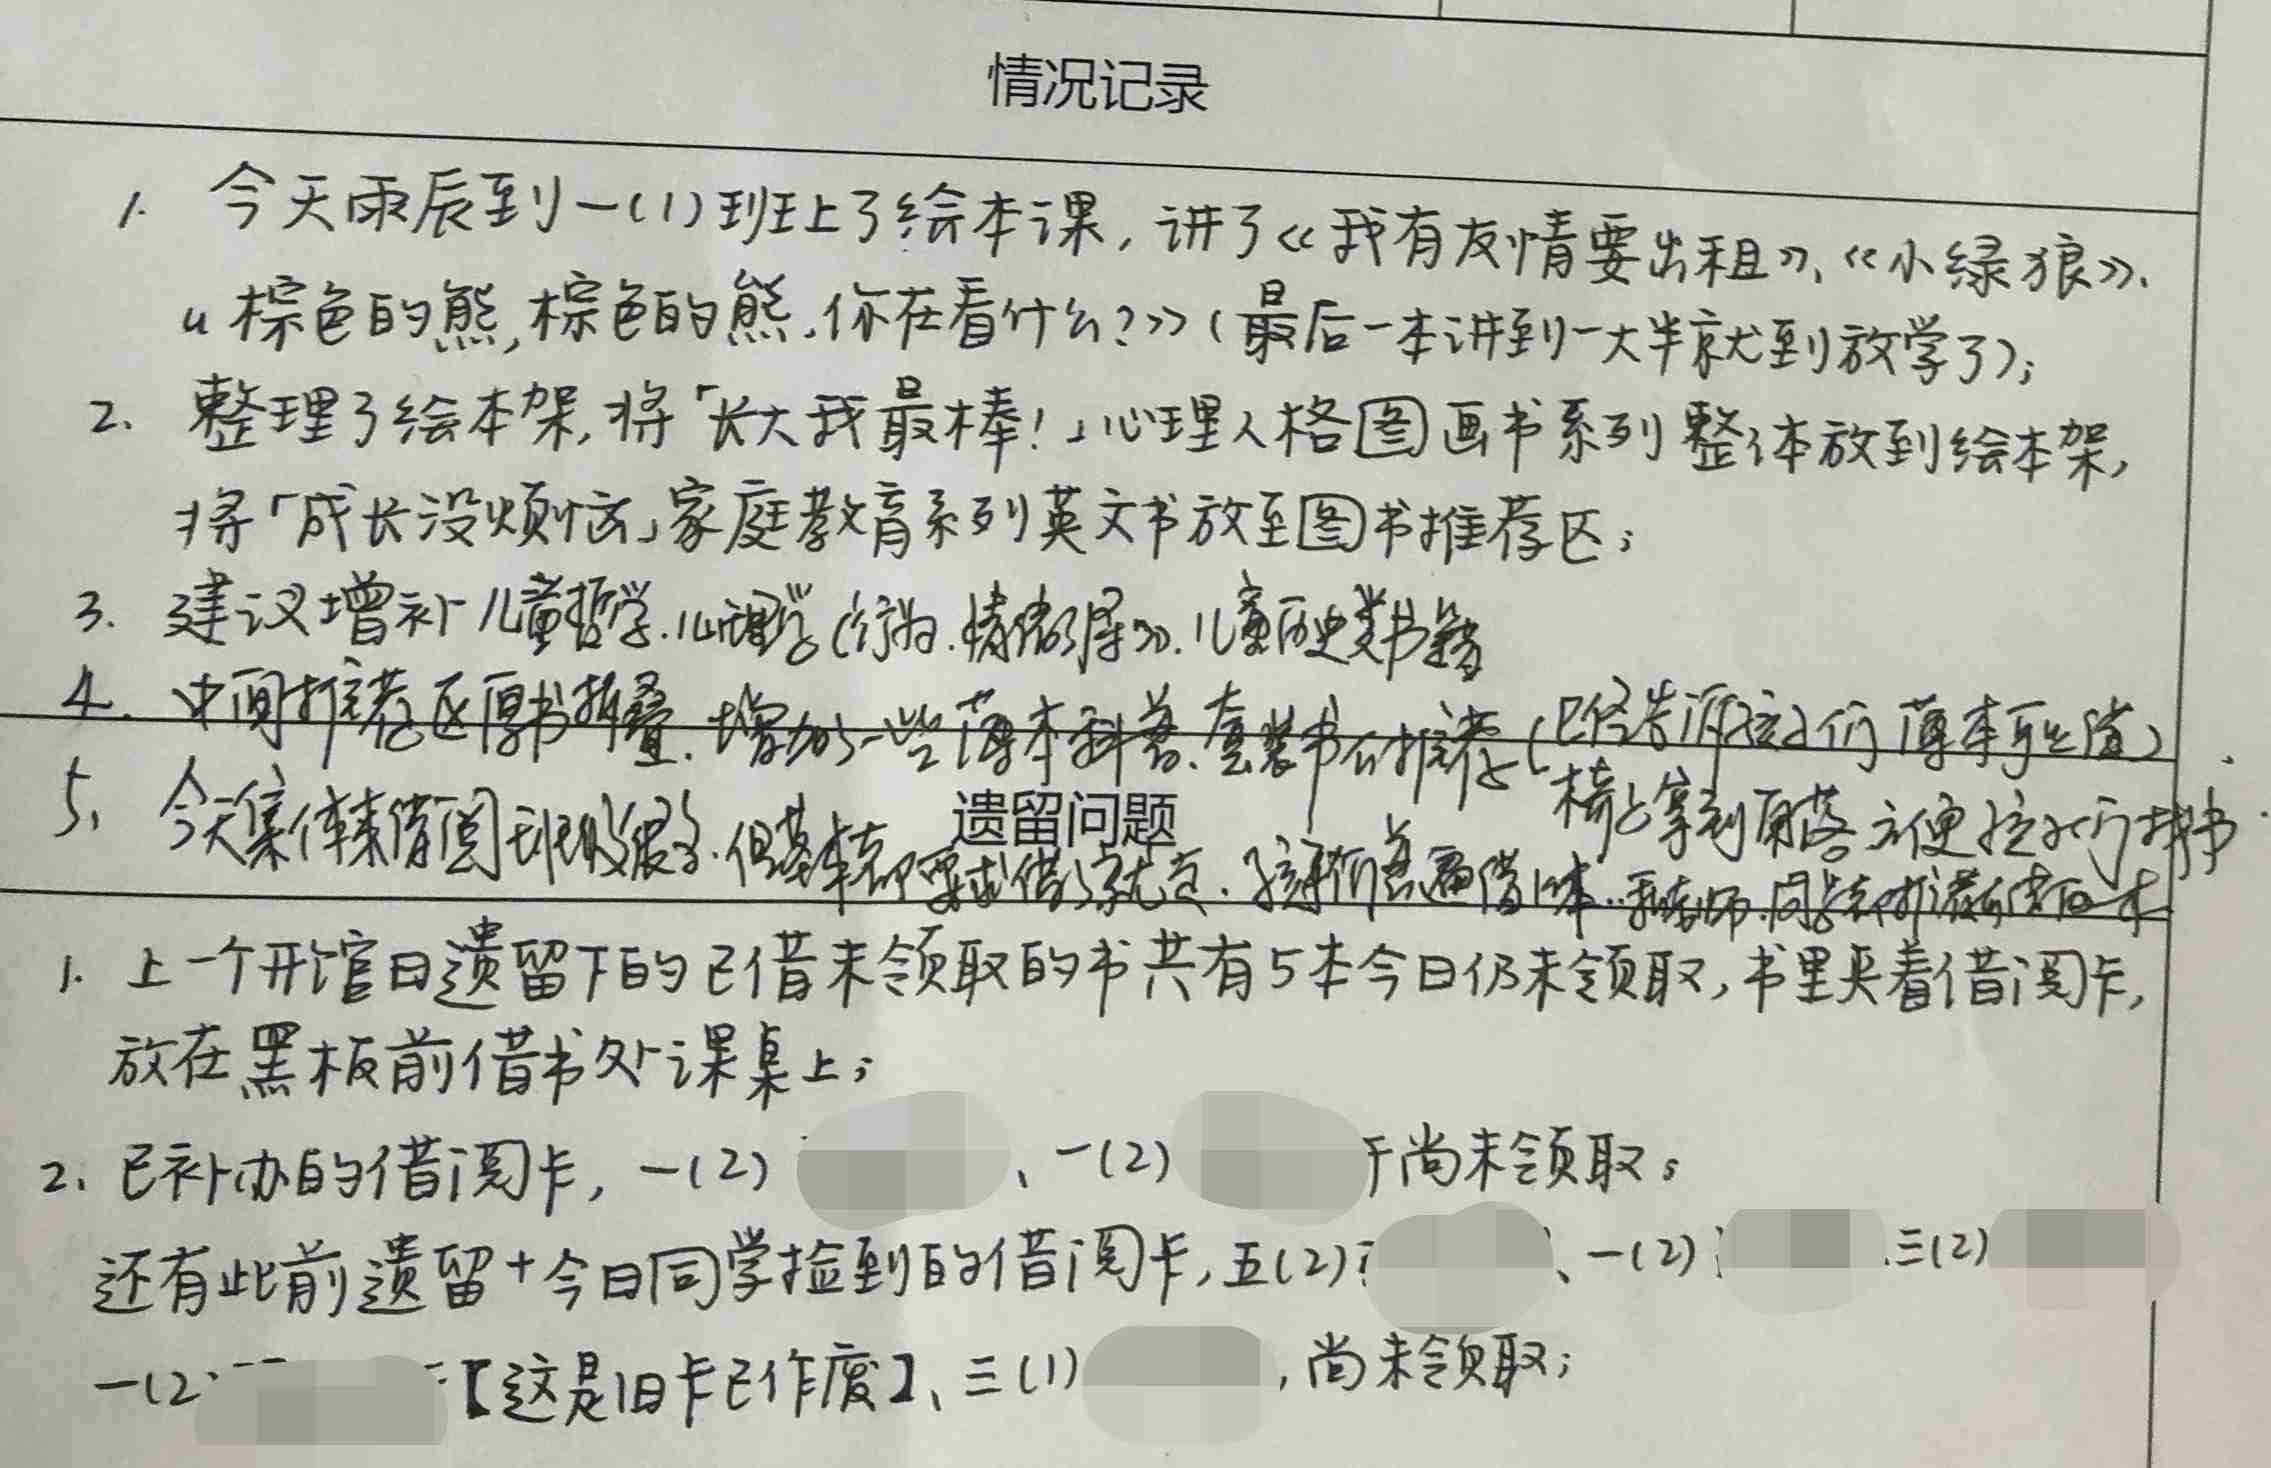 情况记录
1. 今天雨辰到一(1)班上了绘本课,讲了《我有友情要出租》、《小绿狼》、
《棕色的熊,棕色的熊,你在看什么?》(最后一本讲到一大半就到放学了);
2. 整理了绘本架,将「长大我最棒!」心理人格图画书系列整体放到绘本架,
将「成长没烦恼」家庭教育系列英文书放至图书推荐区;
3. 建议增补儿童哲学、心理学(行为、情绪)、儿童历史类书籍
4. 中间推荐区厚书折叠、增加了一些薄本科普、套装书的推荐(已经告诉孩子们薄本可以借)
椅子拿到角落方便孩子们找书
5. 今天集体来借阅班级很多,但基本都要求借了就走,孩子们普遍借1本
遗留问题
1. 上一个开馆日遗留下的已借未领取的书共有5本今日仍未领取,书里夹着借阅卡,
放在黑板前借书处课桌上;
2. 已补办的借阅卡,一(2)、一(2)尚未领取。
还有此前遗留+今日同学捡到的借阅卡,五(2)、一(2)、三(2)
一(2【这是旧卡已作废】、三(1),尚未领取;